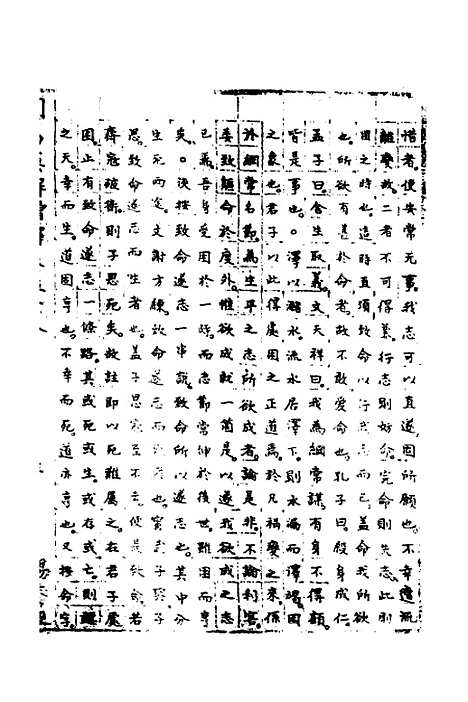 惜者使安常无事我志可以直遂固所願也不幸遭
離變故二者不可得兼行志則妨命完命則失志此則
困之時也這時直須致命以行我志而已蓋命我所欲
也所欲有甚於命者故不敢愛命也孔子曰殺身成仁
孟子曰舍生取義文天祥曰我為綱常謀有身不得顧
皆是事也。澤以瀦水流水居澤下則水漏而澤涸困
之象也君子以此得處困之正道焉於凡禍變之來係
於綱常名節為生平之志所欲成者論是非不論利害
委致軀命於度外惟欲成就一箇是以遂我欲成之志
已爾吾身受困於一時而志節常伸於後世雖困而亨
矣。決按致命遂志一串說致命所以遂志也其中分
生死而文謝方鍊致命遂志而死者也
思致命遂志而生者也蓋子思
齊寇彼衛則子思死矣故註即以死難屬之在君子處
困止有致命遂志一條路其或死或生或存或亡則
之天幸而生道固亨也不幸而死道亦亨也又按命字